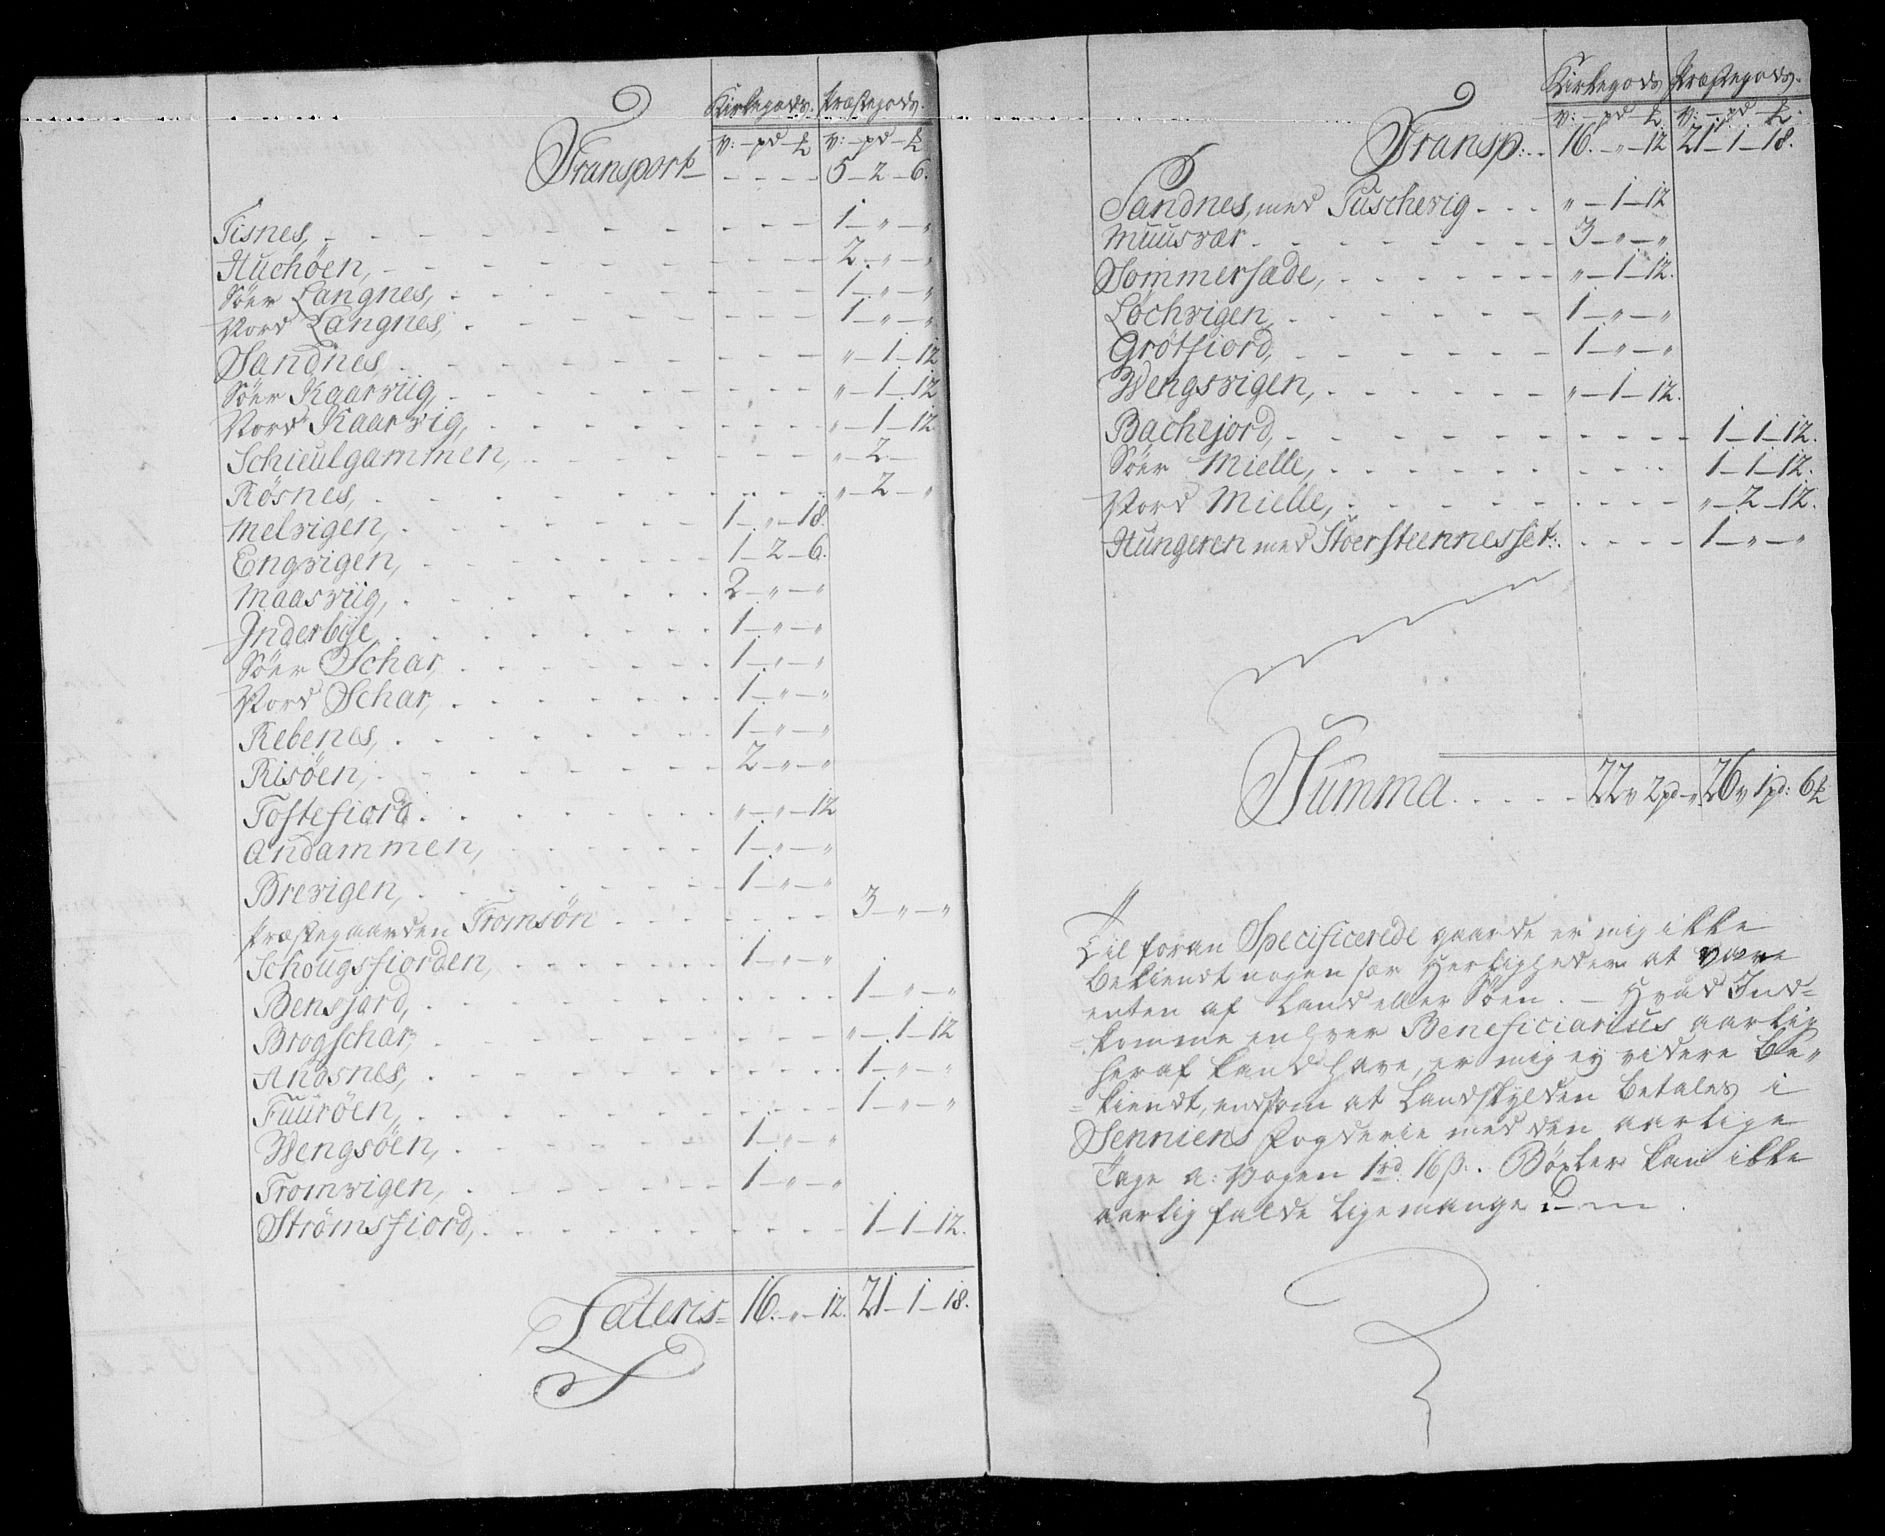 Kirkegods. Præstegods.
v: – pd – ℔ v: – pd – ℔
Transport – – – – 5 – 2 – 6.
Tisnes, – – – 1 – „ – „
Huchöen, – – – 2 – „ – „
Söer Langnes, – – – 1 – „ – „
Nord Langnes, – – – 1 – „ – „
Sandnes, – – – „ – 1 – 12
Söer Kaarviig, – – – „ – 1 – 12
Nord Kaarvig, – – – „ – 1 – 12
Schieulgammen, – – – „ – 2 –
Rösnes, – – – „ – 2 – „
Melvigen, – – – 1 – „ – 18.
Engvigen, – – – 1 – 2 – 6.
Maasviig, – – – 2 – „ – „
Inderbÿe, – – – 1 – „ – „
Söer Schar, – – – 1 – „ – „
Nord Schar, – – – 1 – „ – „
Rebenes, – – – 1 – „ – „
Risöen, – – – 2 – „ – „
Toftefiord. – – – „ – „ – 12
Andammen, – – – 1 – „ – „
Brevigen, – – – 1 – „ – „
Præstegaarden Tromsön – – – 3 – „ – „
Schougsfiorden, – – – 1 – „ – „
Bensjord, – – – 1 – „ – „
Brogschar, – – – „ – 1 – 12
Andsnes, – – – 1 – „ – „
Fuuröen, – – – 1 – „ – „
Wengsöen, – – – 1 – „ – „
Tromvigen, – – – 1 – „ – „
Strömsfiord, – – – 1 – 1 – 12.
Lateris 16. – „ – 12. 21 – 1 – 18.
Kirkegods Præstegods.
v: – pd – ℔ v: – pd – ℔
Transp: – 16. – „ – 12 21 – 1 – 18.
Sandnes, med Tuschevig – – – „ – 1 – 12
Muusvær – – – 3 – „ – „
Sommersæde, – – – „ – 1 – 12.
Lochvigen, – – – 1 – „ – „
Grötfiord, – – – 1 – „ – „
Wengsvigen, – – – „ – 1 – 12.
Bachejord, – – – 1 – 1 – 12.
Söer Mielle, – – – 1 – 1 – 12.
Nord Mielle, – – – „ – 2 – 12.
Hungeren med Stoersteennesset: – – – 1 – „ – „
Summa. – – – 22 v 2 pd – „ 26 v 1 pd: 6 ℔
Til foran Specificerede gaarde er mig ikke
bekiendt nogen sær Herligheder at være
enten af Land eller Söen. – Hvad Ind=
=komme enhver Beneficiarius aarlig
heraf kand have, er mig ey videre be„
=kiendt, end som at Landskylden betales i
Senniens Fogderie med den aarlige
Tage a: Vogen 1 rd. 16 ß:. Böxler kan ikke
aarlig falde lige mange